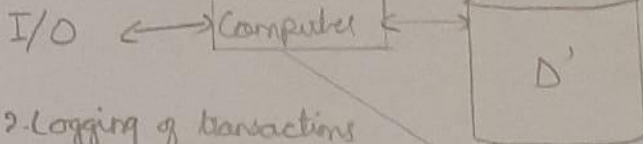 I/O Computer
D'
2. Logging of transactions